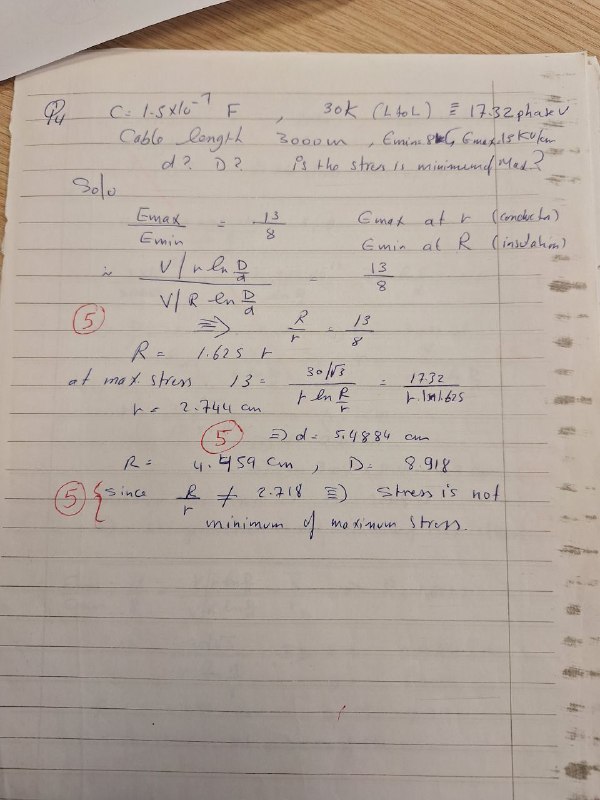 Q4 C = 1.5x10⁻⁷ F , 30K (L to L) ≡ 17.32 phase V
Cable length 3000m , Emin = 8 , Emax 13 KV/cm
d? D? is the stress is minimum of Max?
Solo
Emax / Emin = 13 / 8 Emax at r (conductor)
Emin at R (insulation)
V / r ln D/d / V / R ln D/d = 13 / 8
5
⇒ R / r = 13 / 8
R = 1.625 r
at max stress 13 = 30/√3 / r ln R/r = 17.32 / r. ln 1.625
r = 2.744 cm
5 ⇒ d = 5.4884 cm
R = 4.459 cm , D = 8.918
5 { since R / r ≠ 2.718 ⇒ stress is not
minimum of maximum stress.